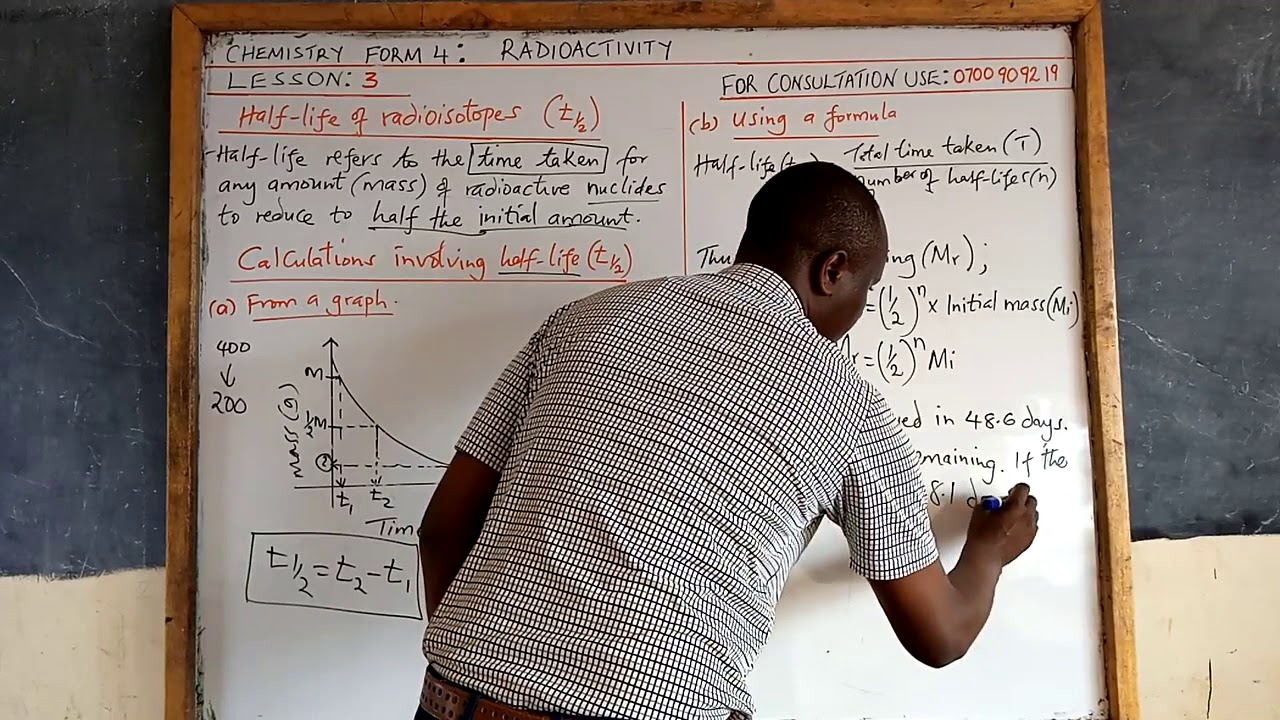 CHEMISTRY FORM 4: RADIOACTIVITY
LESSON: 3
FOR CONSULTATION USE: 0700 909219
Half-life of radioisotopes (t½)
-Half-life refers to the time taken for
any amount (mass) of radioactive nuclides
to reduce to half the initial amount.
Calculations involving half-life (t½)
(a) From a graph.
400
↓
200
mass (g)
M
½M
t₁ t₂
Tim
t½ = t₂ - t₁
(b) Using a formula
Half-life (t
Total time taken (T)
number of half-lifes (n)
ng (Mr) ;
= (½)ⁿ x Initial mass (Mi)
= (½)ⁿ Mi
in 48.6 days.
maining. If the
8.1 d